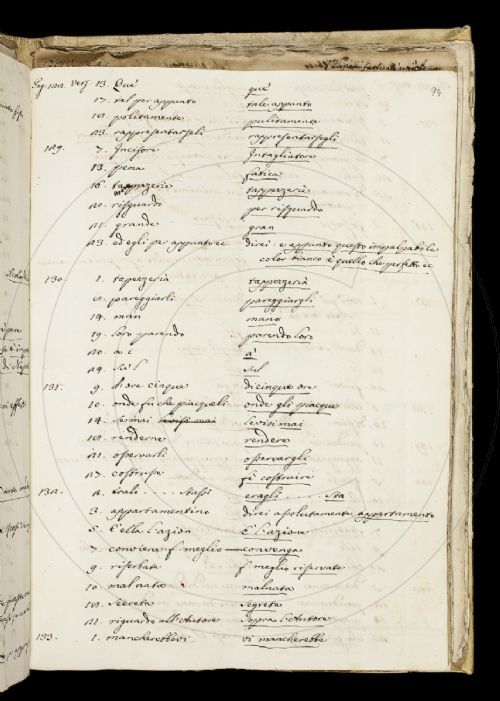 93
Pag: 122. vers. 13. Què què
17. tal per appunto tale appunto
19. politamente pulitamente
23. rappresentarseli rappresentarsegli
129. 7. Incisore Intagliatore
13. pena fatica
16. tappezerie tappezzerie
20. risguardo per risguardo
21. grande gran
23. ed egli per appunto ec direi: e appunto questo impalpabile
color bianco è quello che perfetto ec
130. 1. tapezeria tappezzeria
9. pareggiarli pareggiargli
14. man mano
19. loro parendo parendo loro
20. a i a'
29. Sù l Sul
131. 9. di ore cinque di cinque ore
10. onde fù che piacqueli onde gli piacque
14. se mai levisi mai
19. renderne rendere
21. osservarli osservargli
27. costrusse fè costruire
132. 2. erali . . . . stassi eragli . . . . sta
3. appartamentino direi assolutamente appartamento
5. E ella l'azion È l'azione
7. conviene p. meglio convenga
9. riserbata p. meglio riservata
10. malnata malnata
19. secreta segreta
21. riguardo all'Autore sopra l'Autore
133. 1. mancherebbevi vi mancherebbe